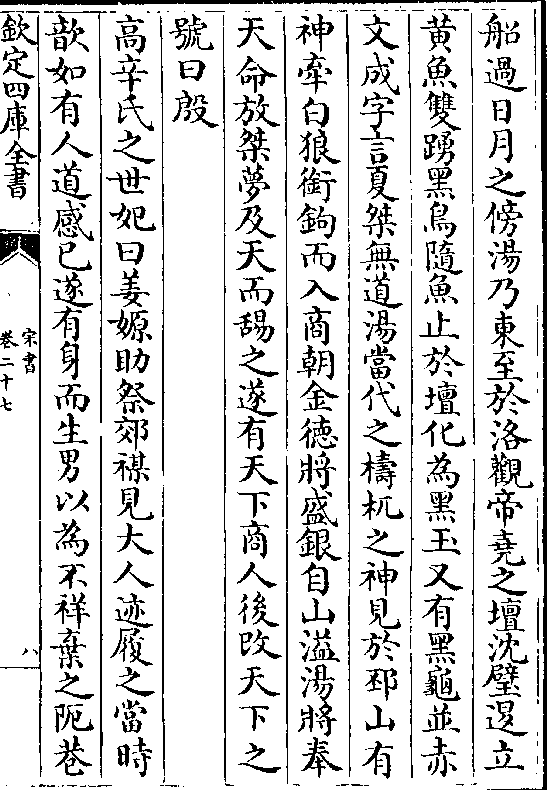 船過日月之傍湯乃東至於洛觀帝堯之壇沈璧退立
黄魚雙踴黑鳥隨魚止於壇化為黑玉又有黑龜並赤
文成字言夏桀無道湯當代之檮杌之神見於邳山有
神牽白狼銜鉤而入商朝金徳將盛銀自山溢湯將奉
天命放桀夢及天而䑛之遂有天下商人後改天下之
號曰殷
高辛氏之世妃曰姜嫄助祭郊禖見大人迹履之當時
歆如有人道感己遂有身而生男以為不祥棄之阨巷
欽定四庫全書
宋書
卷二十七
八